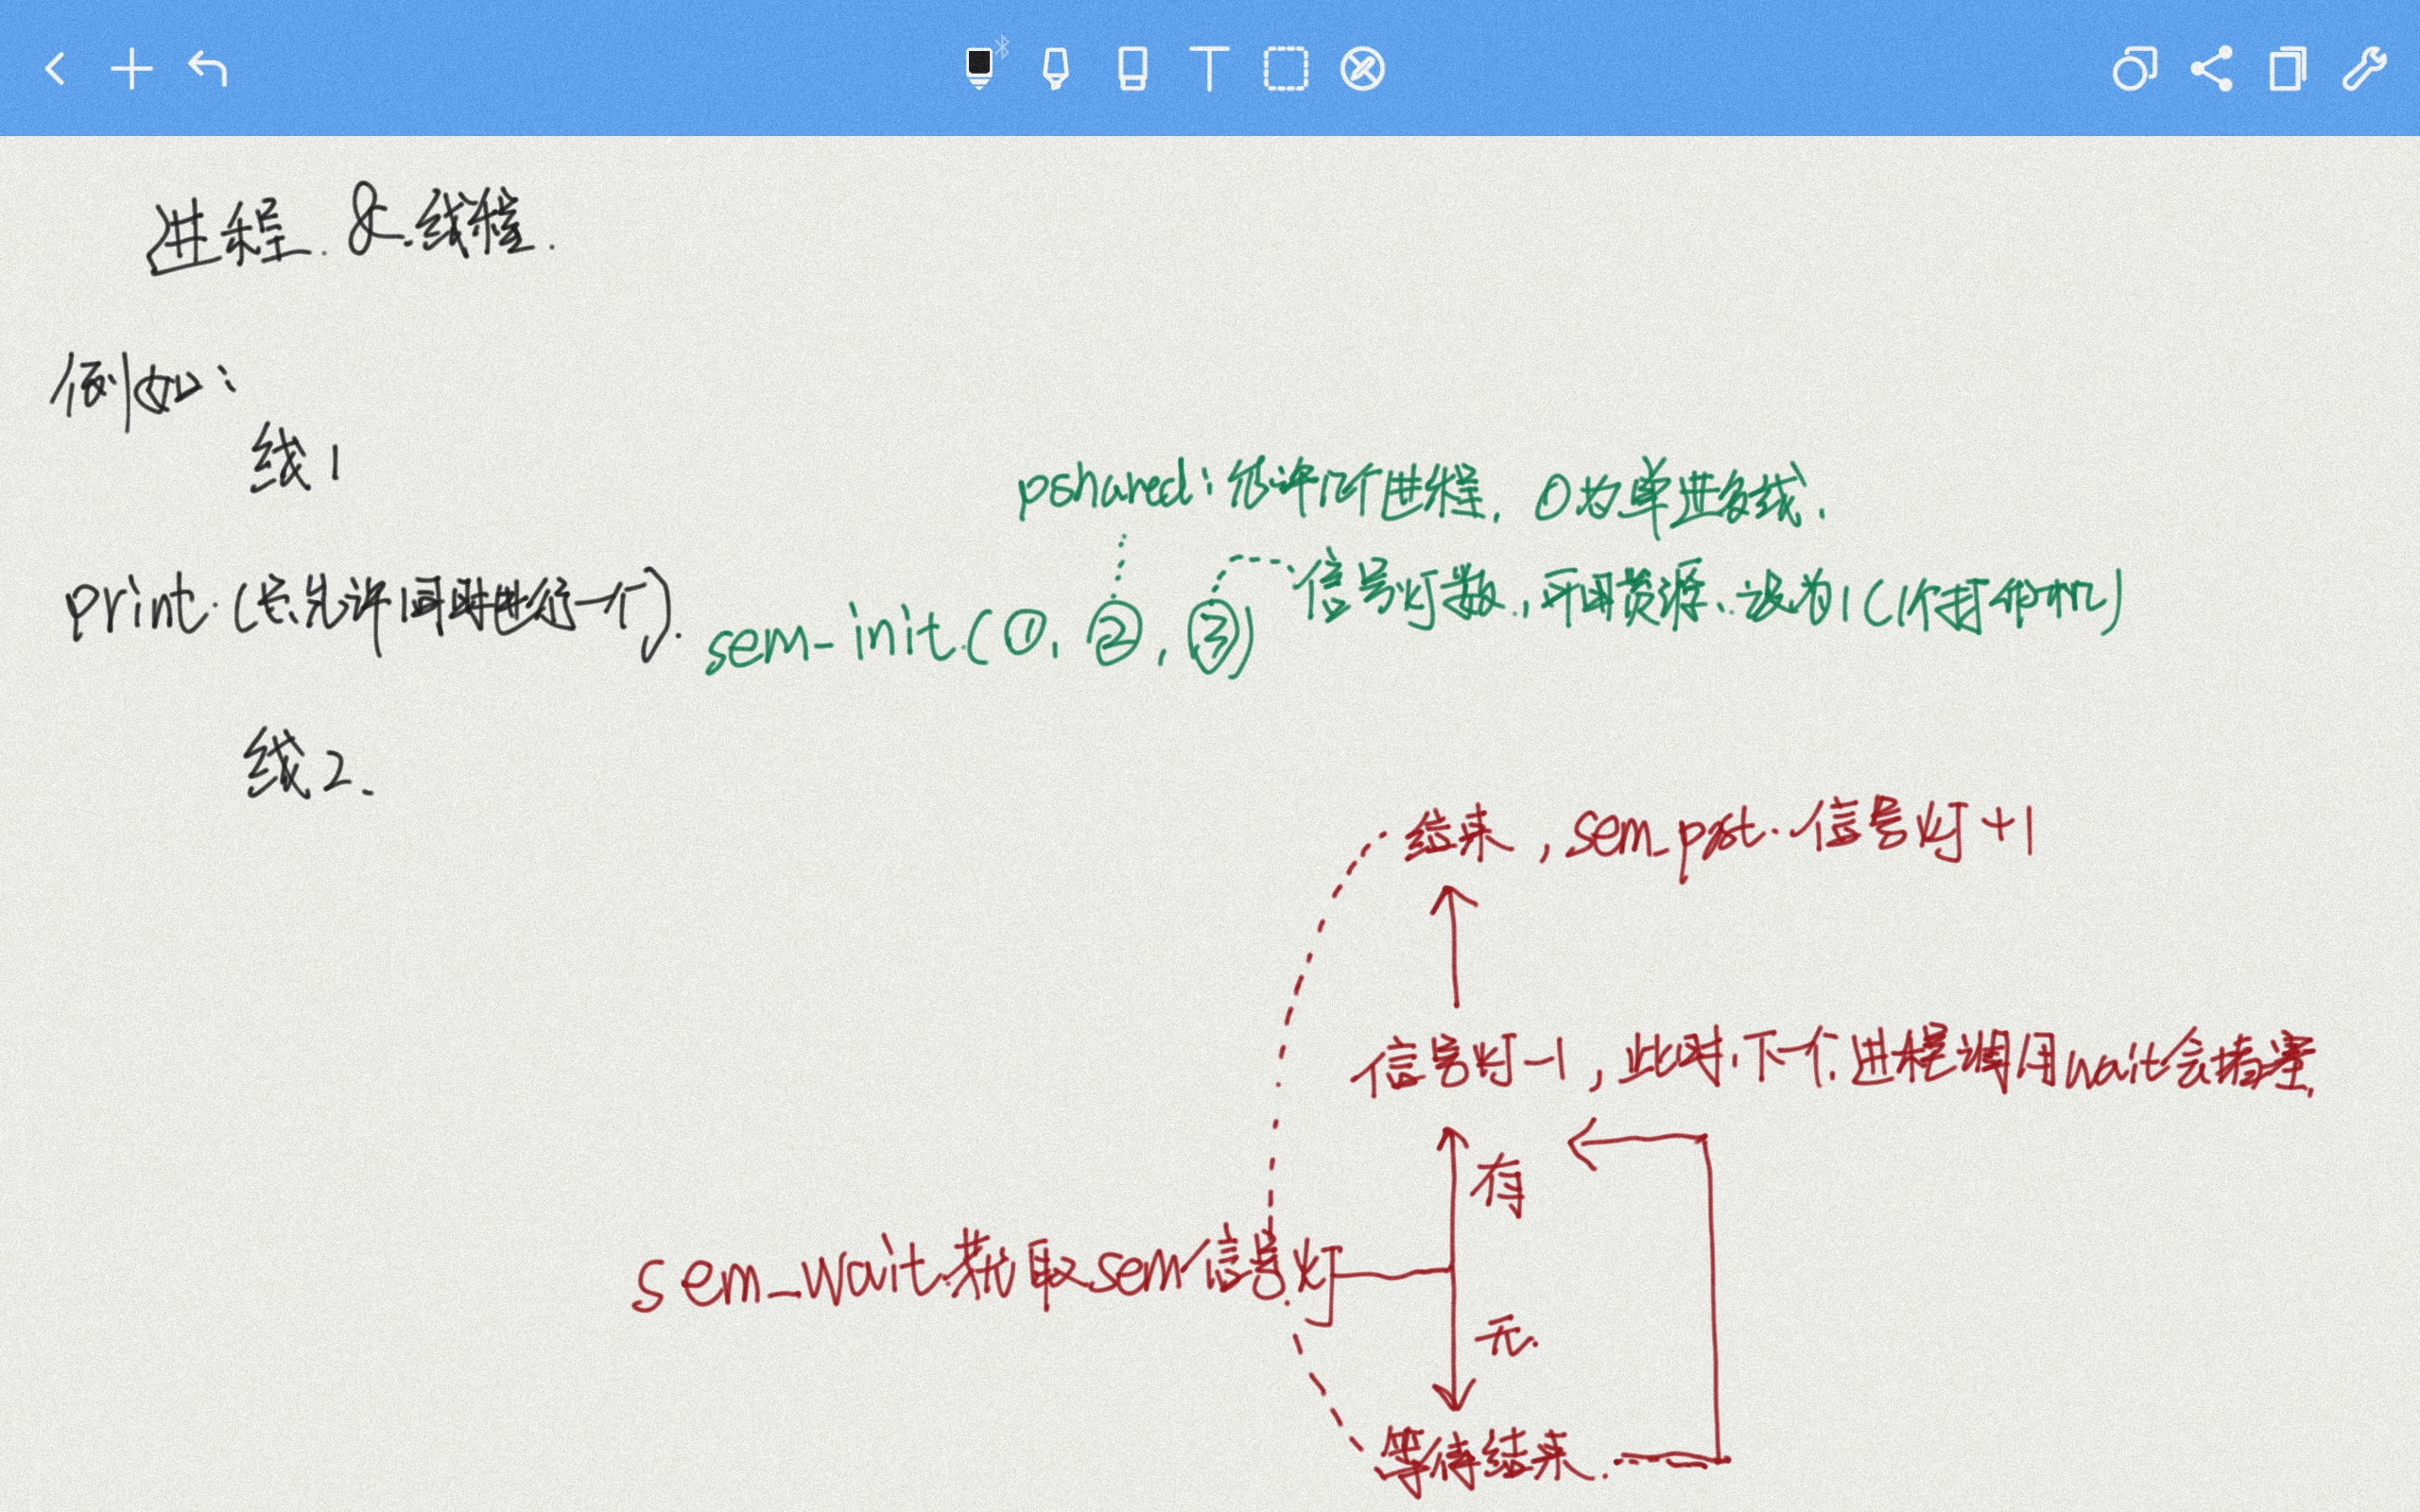 进程. & 线程.
例如:
线1
pshared: 允许几个进程, 0为单进多线.
信号灯数, 可用资源. 设为1(1个打印机)
print.(只允许同时进行一个).
sem_init.(①, ②, ③)
线2.
结束, sem_post. 信号灯+1
信号灯-1, 此时, 下一个进程调用wait会堵塞.
有
sem_wait 获取sem信号灯
无.
等待结束.